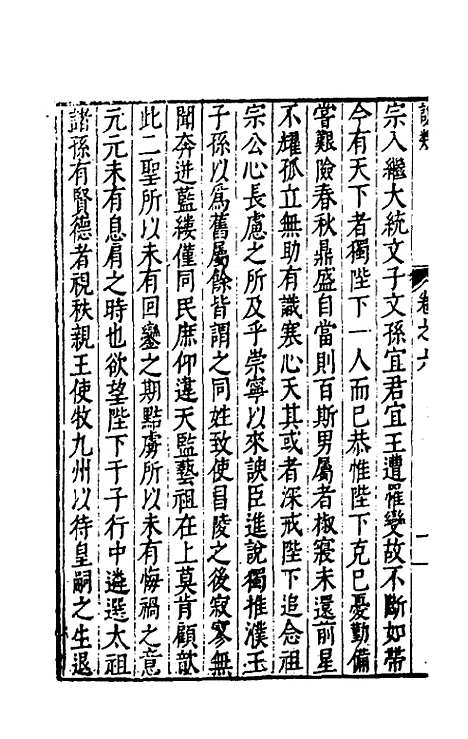 卷之六
宗入繼大統文子文孫宜君宜王遭罹變故不斷如帶
今有天下者獨陛下一人而已恭惟陛下克已憂勤備
嘗艱險春秋鼎盛自當則百斯男屬者椒寢未還前星
不耀孤立無助有識寒心天其或者深戒陛下追念祖
宗公心長慮之所及乎崇寧以來諛臣進說獨推濮王
子孫以為舊屬餘皆謂之同姓致使昌陵之後寂寥無
聞奔迸藍縷僅同民庶仰違天監藝祖在上莫肯顧歆
此二聖所以未有回鑾之期黠虜所以未有悔禍之意
元元未有息肩之時也欲望陛下于子行中遴選太祖
諸孫有賢德者視秩親王使牧九州以待皇嗣之生退